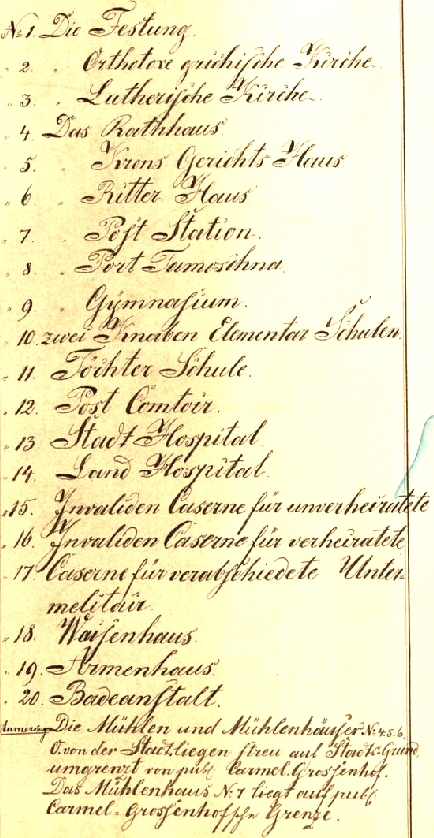 No 1. Die Festung.
" 2. " Orthotoxe grichische Kirche.
" 3. " Lutherische Kirche.
" 4 Das Rathhaus
" 5. " Krons Gerichts Haus
" 6 " Ritter Haus
" 7. " Post Station.
" 8 " Port Tamoschna
" 9 " Gymnasium.
" 10. zwei Knaben Elementar Schulen.
" 11. Töchter Schule.
" 12. Post Comtoir.
" 13 Stadt Hospital
" 14. Land Hospital.
" 15. Invaliden Caserne für unverheiratete
" 16. Invaliden Caserne für verheiratete
" 17. Caserne für verabschiedete Unter-
melitair.
" 18. Waisenhaus
" 19. Armenhaus.
" 20. Badeanstalt.
Die Mühlen und Mühlenhäuser No 4. 5. 6.
von der Stadt liegen streu auf Stadts Grund,
umgrenzt von publ. Carmel. Grossenhof.
Das Mühlenhaus No 7 liegt auf publ.
Carmel-Grossenhofsche Grenze.